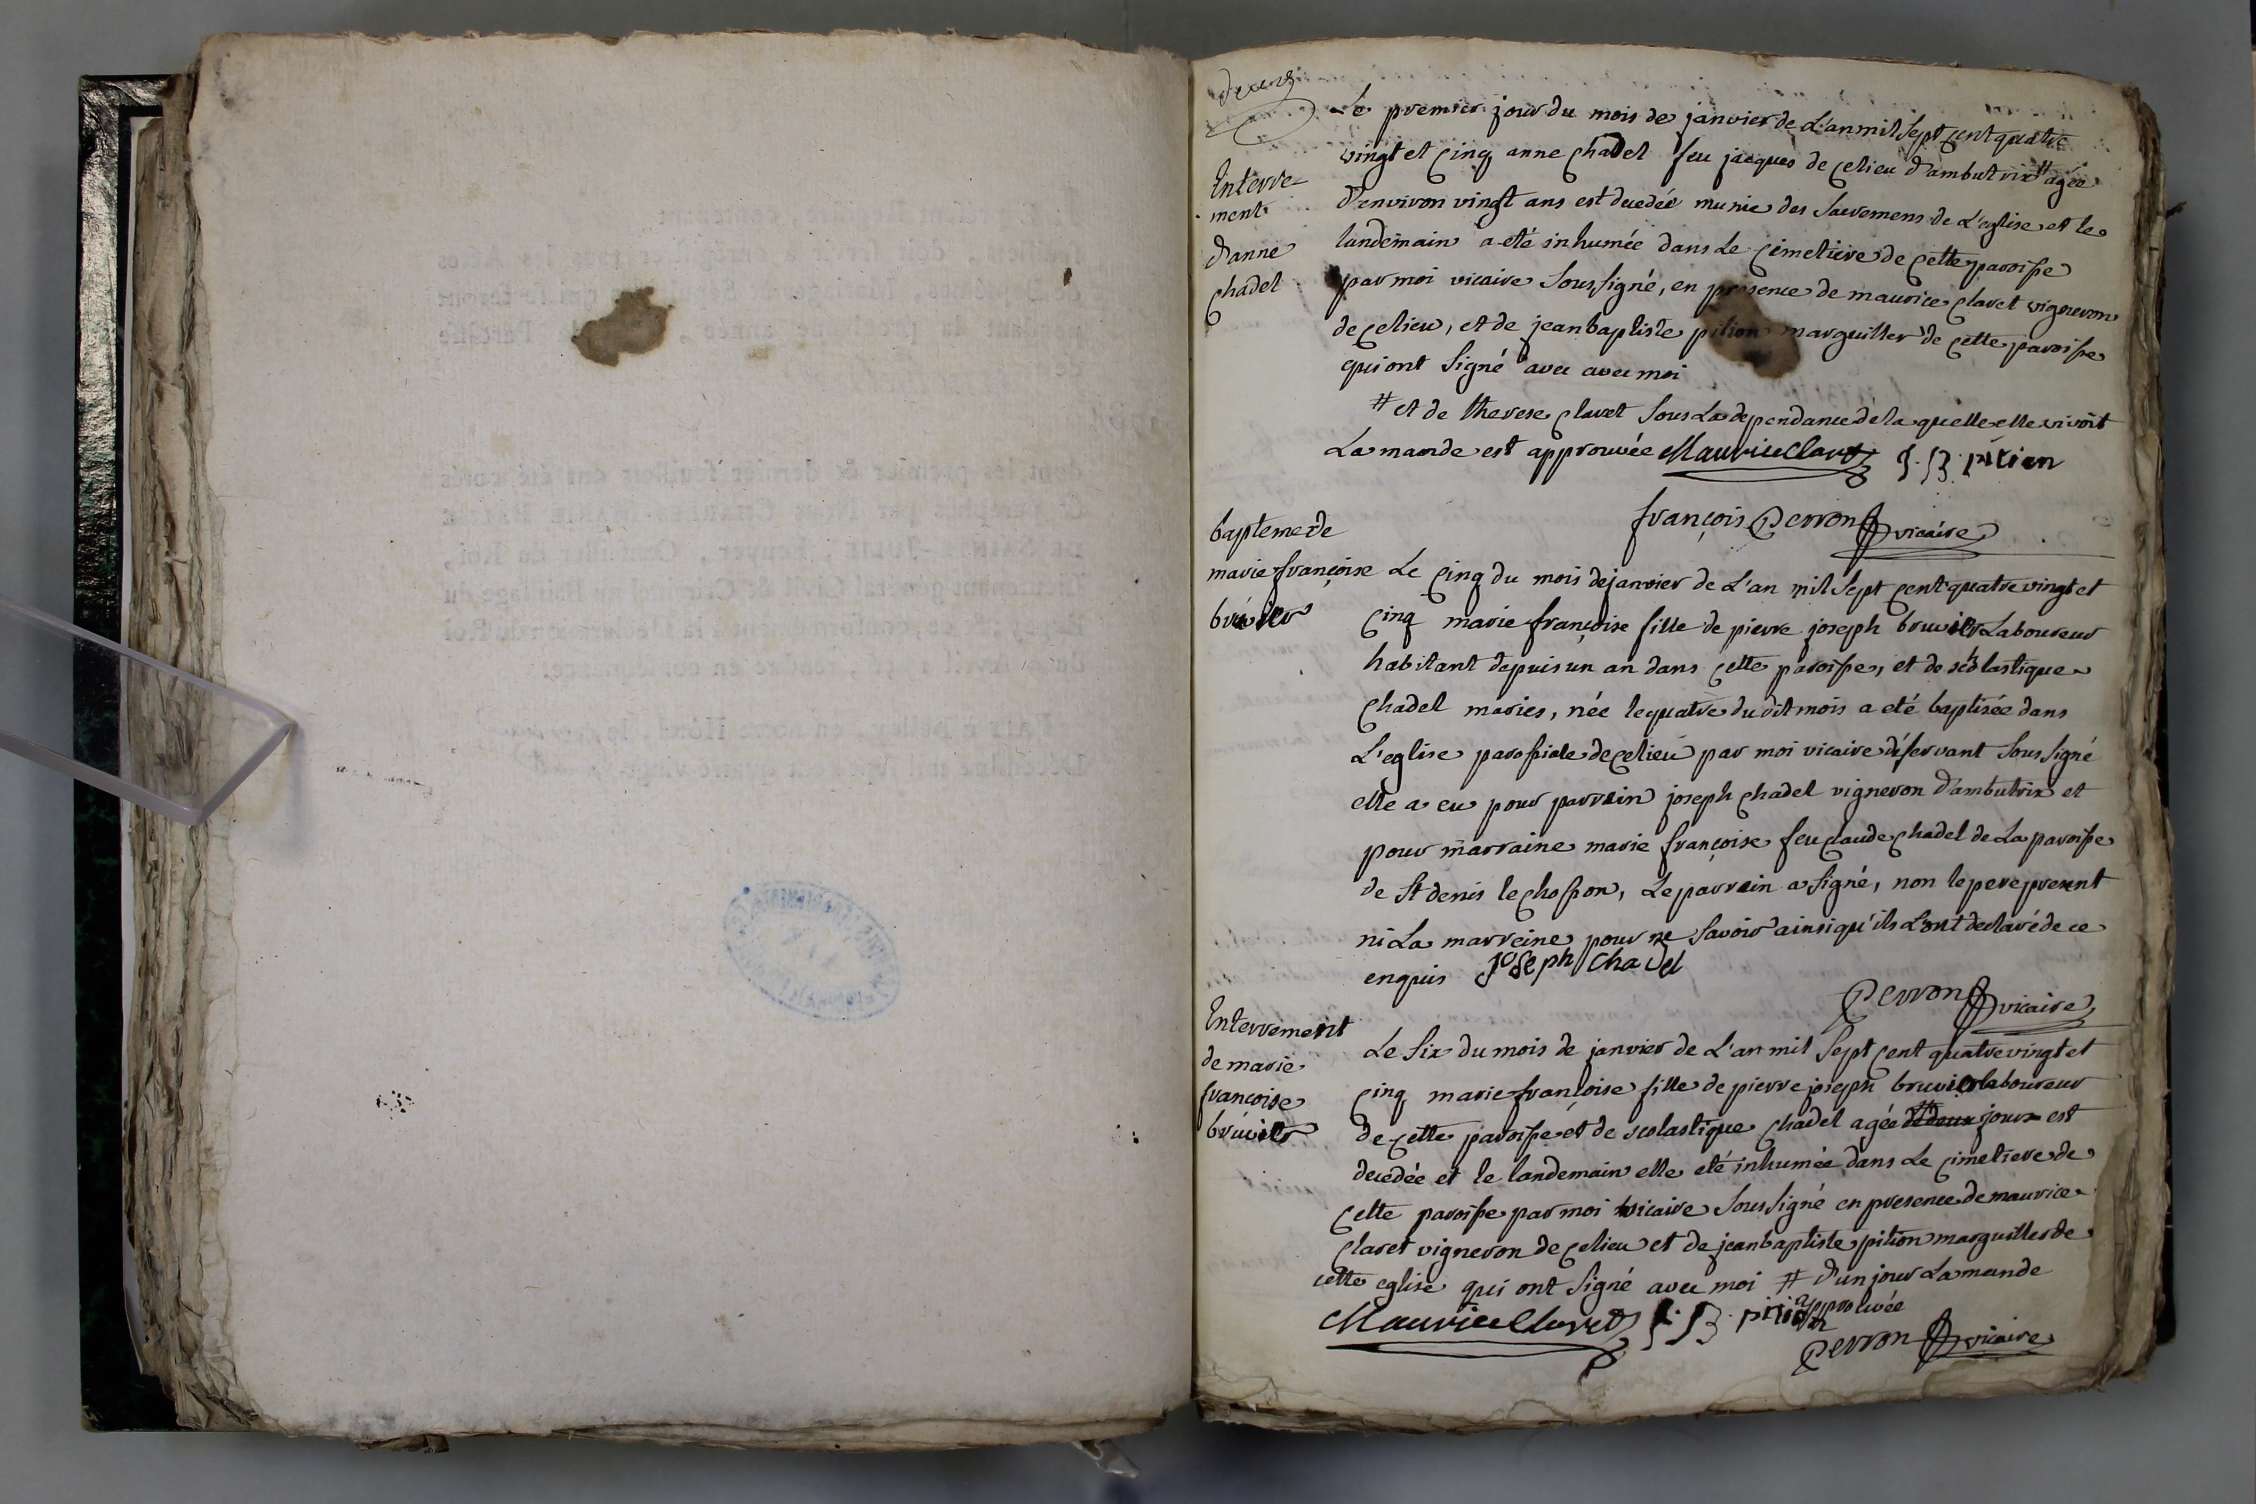 Enterre-
ment
d'anne
chadel
Le premier jour du mois de janvier de L'an mil sept cent quatre
vingt et cinq anne chadel feu jacques de celieu d'ambutrix # agée
d'environ vingt ans est decedée munie des sacremens de L'eglise et le
landemain a eté inhumée dans Le cimetiere de cette paroisse
par moi vicaire soussigné, en presence de maurice claret vigneron
de celieu, et de jean baptiste pition marguiller de cette paroisse
qui ont signé avec avec moi
# et de therese claret sous La dependance de la quelle elle vivoit
La mande est approuvée Maurice Claret J. B. pition
françois Perron vicaire
bapteme de
marie françoise
bruvier
Le cinq du mois de janvier de L'an mil sept cent quatre vingt et
cinq marie françoise fille de pierre joseph bruvier Laboureur
habitant depuis un an dans cette paroisse, et de scholastique
chadel maries, née le quatre du dit mois a eté baptisée dans
L'eglise paroissiale de celieu par moi vicaire désservant sous signé
elle a eu pour parrain joseph chadel vigneron d'ambutrix et
pour marraine marie françoise feu claude chadel de La paroisse
de St denis le chosson, Le parrain a signé, non le pere present
ni La marreine pour ne savoir ainsi qu'ils L'ont declaré de ce
enquis Joseph Chadel
Perron vicaire
Enterrement
de marie
françoise
bruvier
Le six du mois de janvier de L'an mil sept cent quatre vingt et
cinq marie françoise fille de pierre joseph bruvier laboureur
de cette paroisse et de scolastique chadel agée # de deux jours est
decedée et le landemain elle eté inhumée dans Le cimetiere de
cette paroisse par moi vicaire sous signé en presence de maurice
claret vigneron de celieu et de jean baptiste pition marguiller de
cette eglise qui ont signé avec moi # d'un jour La mande
approuvée
Maurice Claret J. B. pition
Perron vicaire